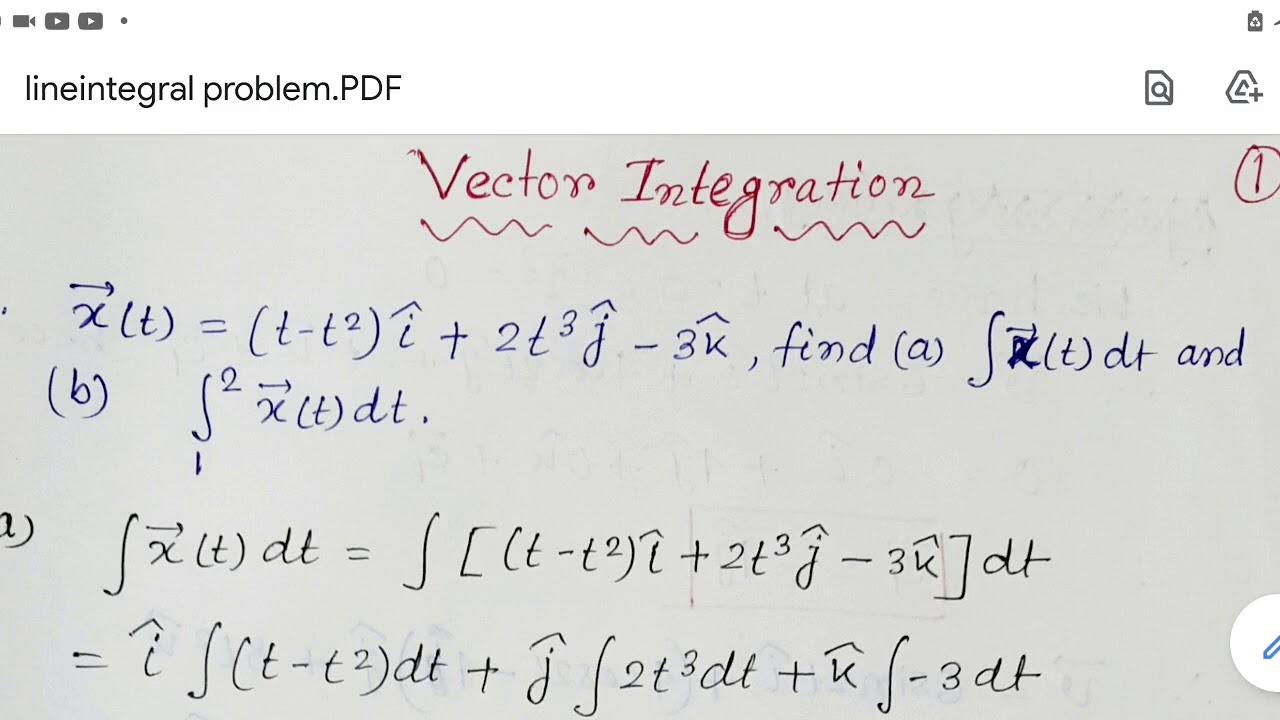 lineintegral problem.PDF
Vector Integration ①
x⃗(t) = (t-t²)î + 2t³ĵ - 3k̂, find (a) ∫x⃗(t) dt and
(b) ∫₁² x⃗(t) dt.
a) ∫x⃗(t) dt = ∫[(t-t²)î + 2t³ĵ - 3k̂] dt
= î ∫(t-t²)dt + ĵ ∫2t³dt + k̂ ∫-3 dt